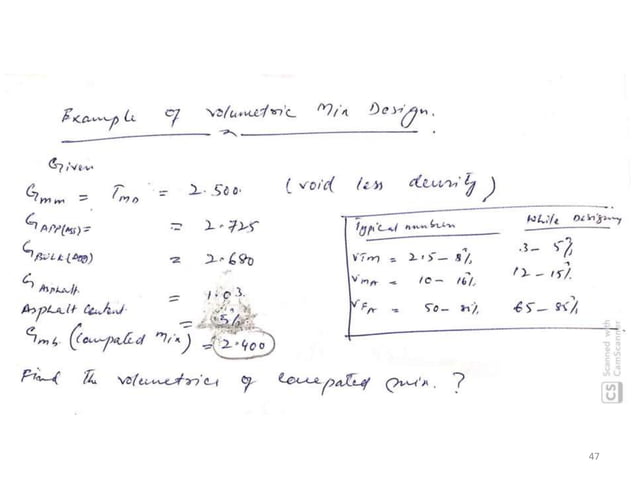 Example of Volumetric Mix Design.
Given
Gmm = Tmd = 2.500. (void less density)
GAPP(AGG) = 2.725
GBULK(AGG) = 2.680
G Asphalt = 1.03.
Asphalt Content = 5%
Gmb (Compated mix) = 2.400
Typical numbers While Designing
VTM = 2.5 - 8% 3 - 5%
VMA = 10 - 16% 12 - 15%
VFA = 50 - 85% 65 - 85%
Find The volumetrics of compated mix. ?
CS Scanned with
CamScanner
47